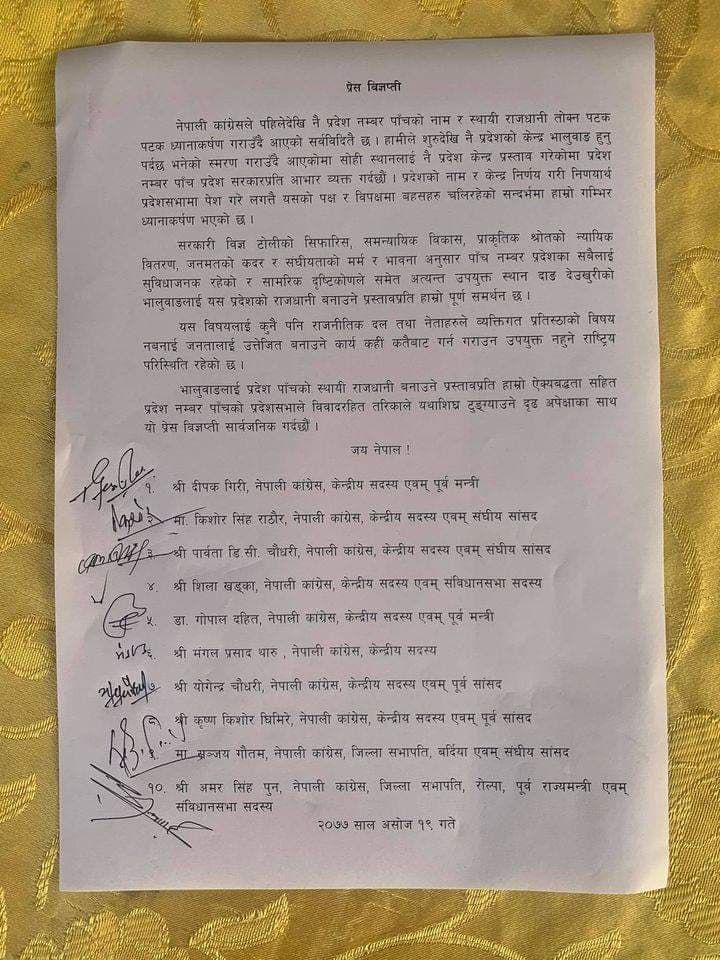 प्रेस विज्ञप्ती
नेपाली कांग्रेसले पहिलेदेखि नै प्रदेश नम्बर पाँचको नाम र स्थायी राजधानी तोक्न पटक
पटक ध्यानाकर्षण गराउँदै आएको सर्वविदितै छ । हामीले शुरुदेखि नै प्रदेशको केन्द्र भालुवाङ हुनु
पर्दछ भनेको स्मरण गराउँदै आएकोमा सोही स्थानलाई नै प्रदेश केन्द्र प्रस्ताव गरेकोमा प्रदेश
नम्बर पाँच प्रदेश सरकारप्रति आभार व्यक्त गर्दछौं । प्रदेशको नाम र केन्द्र निर्णय गरी निणयार्थ
प्रदेशसभामा पेश गरे लगत्तै यसको पक्ष र विपक्षमा बहसहरु चलिरहेको सन्दर्भमा हाम्रो गम्भिर
ध्यानाकर्षण भएको छ ।
सरकारी विज्ञ टोलीको सिफारिस, समन्यायिक विकास, प्राकृतिक श्रोतको न्यायिक
वितरण, जनमतको कदर र संघीयताको मर्म र भावना अनुसार पाँच नम्बर प्रदेशका सबैलाई
सुविधाजनक रहेको र सामरिक दृष्टिकोणले समेत अत्यन्त उपयुक्त स्थान दाङ देउखुरीको
भालुवाङलाई यस प्रदेशको राजधानी बनाउने प्रस्तावप्रति हाम्रो पूर्ण समर्थन छ ।
यस विषयलाई कुनै पनि राजनीतिक दल तथा नेताहरुले व्यक्तिगत प्रतिस्ठाको विषय
नबनाई जनतालाई उत्तेजित बनाउने कार्य कहीं कतैबाट गर्न गराउन उपयुक्त नहुने राष्ट्रिय
परिस्थिति रहेको छ ।
भालुवाङलाई प्रदेश पाँचको स्थायी राजधानी बनाउने प्रस्तावप्रति हाम्रो ऐक्यबद्धता सहित
प्रदेश नम्बर पाँचको प्रदेशसभाले विवादरहित तरिकाले यथाशिघ्र टुङ्ग्याउने दृढ अपेक्षाका साथ
यो प्रेस विज्ञप्ती सार्वजनिक गर्दछौं ।
जय नेपाल !
१. श्री दीपक गिरी, नेपाली कांग्रेस, केन्द्रीय सदस्य एवम् पूर्व मन्त्री
२. मा. किशोर सिंह राठौर, नेपाली कांग्रेस, केन्द्रीय सदस्य एवम् संघीय सांसद
३. श्री पार्वता डि.सी. चौधरी, नेपाली कांग्रेस, केन्द्रीय सदस्य एवम् संघीय सांसद
४. श्री शिला खड्का, नेपाली कांग्रेस, केन्द्रीय सदस्य एवम् संविधानसभा सदस्य
५. डा. गोपाल दहित, नेपाली कांग्रेस, केन्द्रीय सदस्य एवम् पूर्व मन्त्री
६. श्री मंगल प्रसाद थारु , नेपाली कांग्रेस, केन्द्रीय सदस्य
७ श्री योगेन्द्र चौधरी, नेपाली कांग्रेस, केन्द्रीय सदस्य एवम् पूर्व सांसद
श्री कृष्ण किशोर घिमिरे, नेपाली कांग्रेस, केन्द्रीय सदस्य एवम् पूर्व सांसद
९. मा. सञ्जय गौतम, नेपाली कांग्रेस, जिल्ला सभापति, बर्दिया एवम् संघीय सांसद
१०. श्री अमर सिंह पुन, नेपाली कांग्रेस, जिल्ला सभापति, रोल्पा, पूर्व राज्यमन्त्री एवम्
संविधानसभा सदस्य
२०७७ साल असोज १९ गते